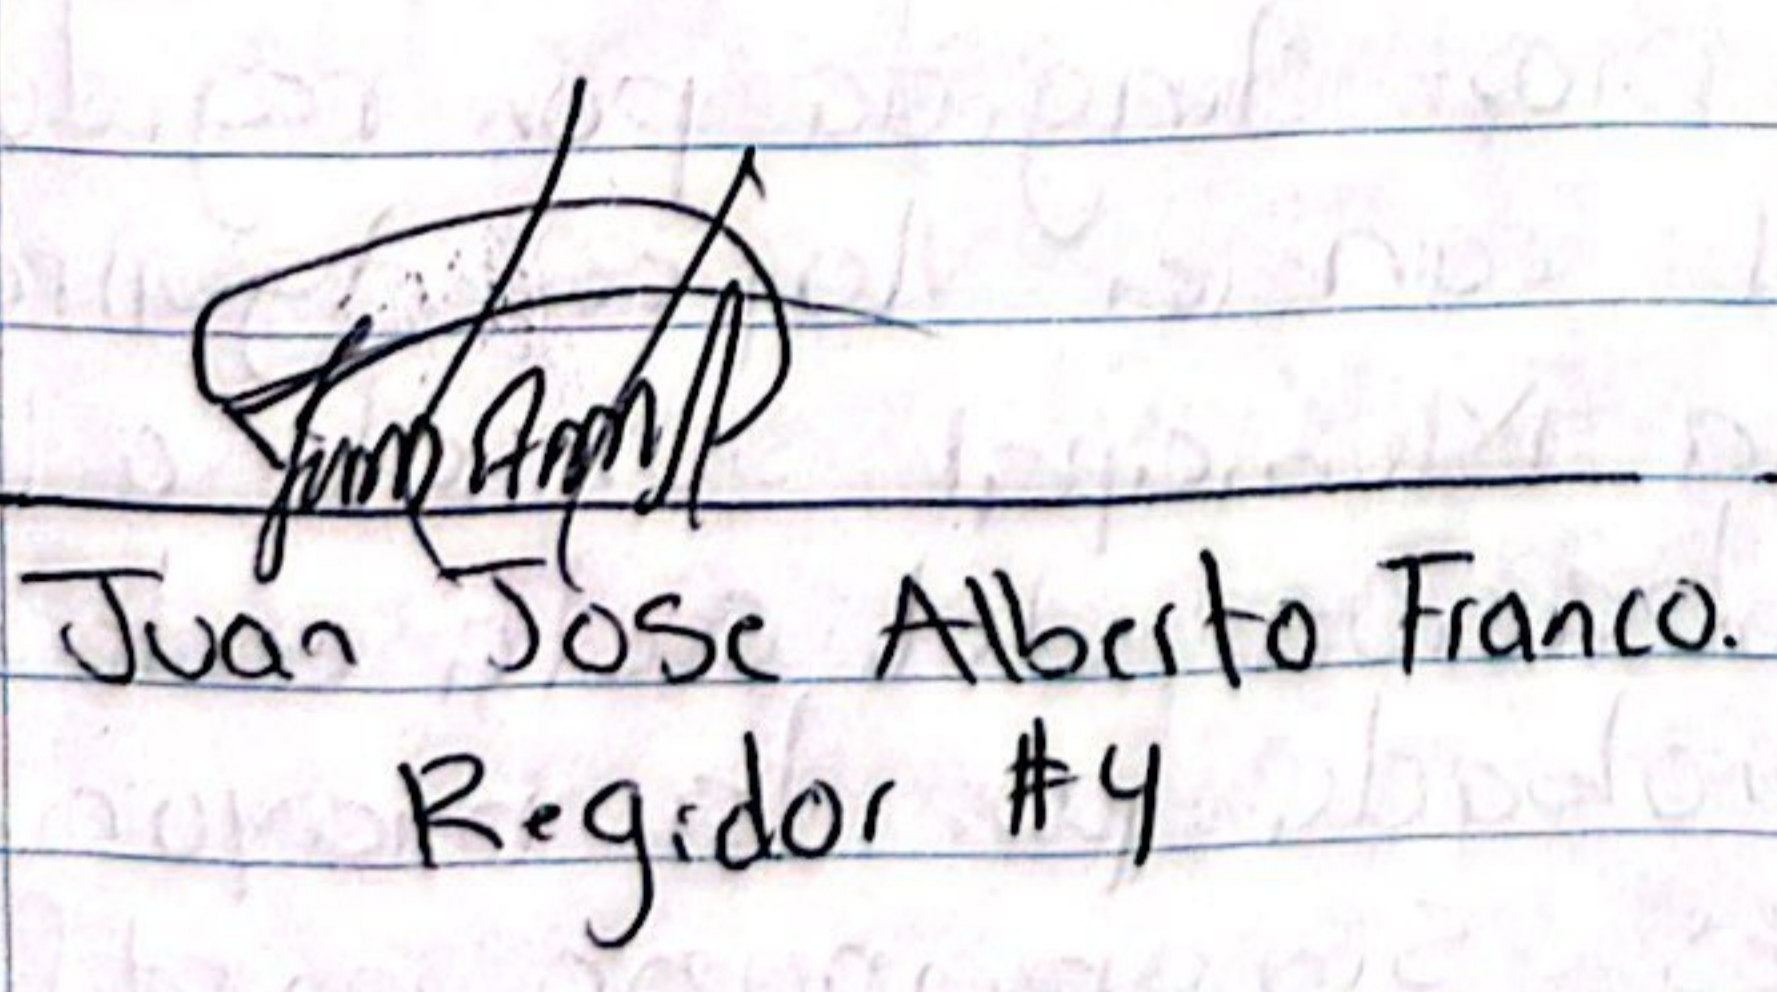 Juan Jose Alberto Franco.
Regidor #4